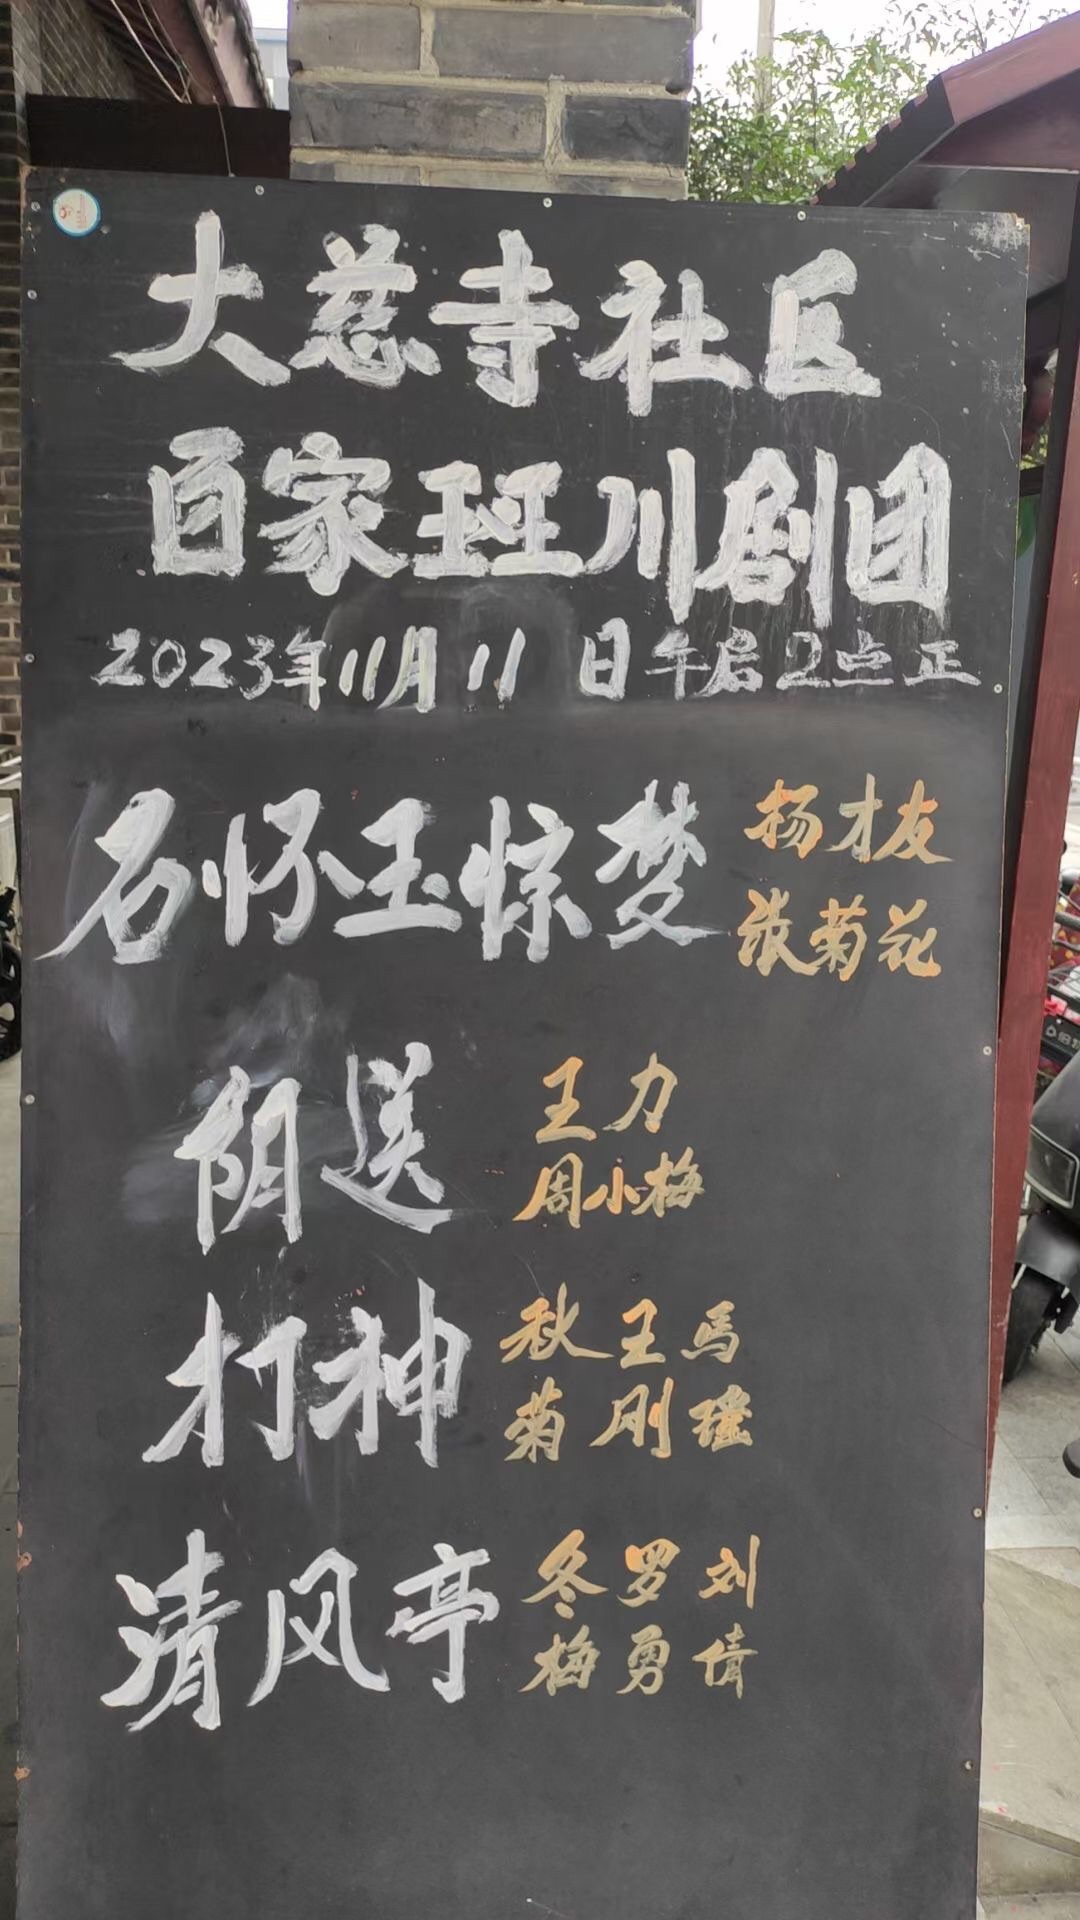 大慈寺社区
百家班川剧团
2023年11月11日午后2点正
石怀玉惊梦 杨才友
张菊花
阴送 王力
周小梅
打神 秋菊 王刚 马瑶
清风亭 冬梅 罗勇 刘倩